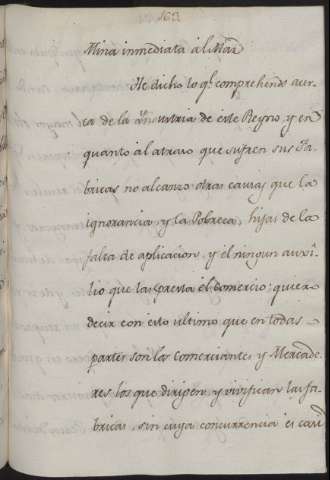 163
Mina inmediata al Mar
He dicho lo q.e comprehendo acer-
ca de la Yndustria de este Reyno, y en
quanto al atraso que sufren sus Fa-
bricas no alcanzo otras causas que la
ignorancia, y la Pobreza, hijas de la
falta de aplicacion, y el ningun auxi-
lio que las presta el Comercio: quier
decir con esto ultimo que en todas
partes son los Comerciantes y Mercade-
res los que dirigen, y vivifican las fa-
bricas, sin cuya concurrencia es casi